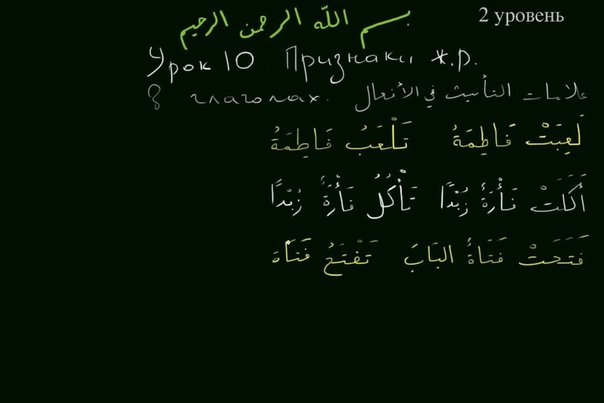 بسم الله الرحمن الرحيم
2 уровень
Урок 10. Признаки ж.р.
в глаголах. علامات التأنيث في الأفعال
لَعِبَتْ فَاطِمَةُ تَلْعَبُ فَاطِمَةُ
أَكَلَتْ فَأْرَةٌ زُبْدًا تَأْكُلُ فَأْرَةٌ زُبْدًا
فَتَحَتْ فَتَاةٌ البَابَ تَفْتَحُ فَتَاة